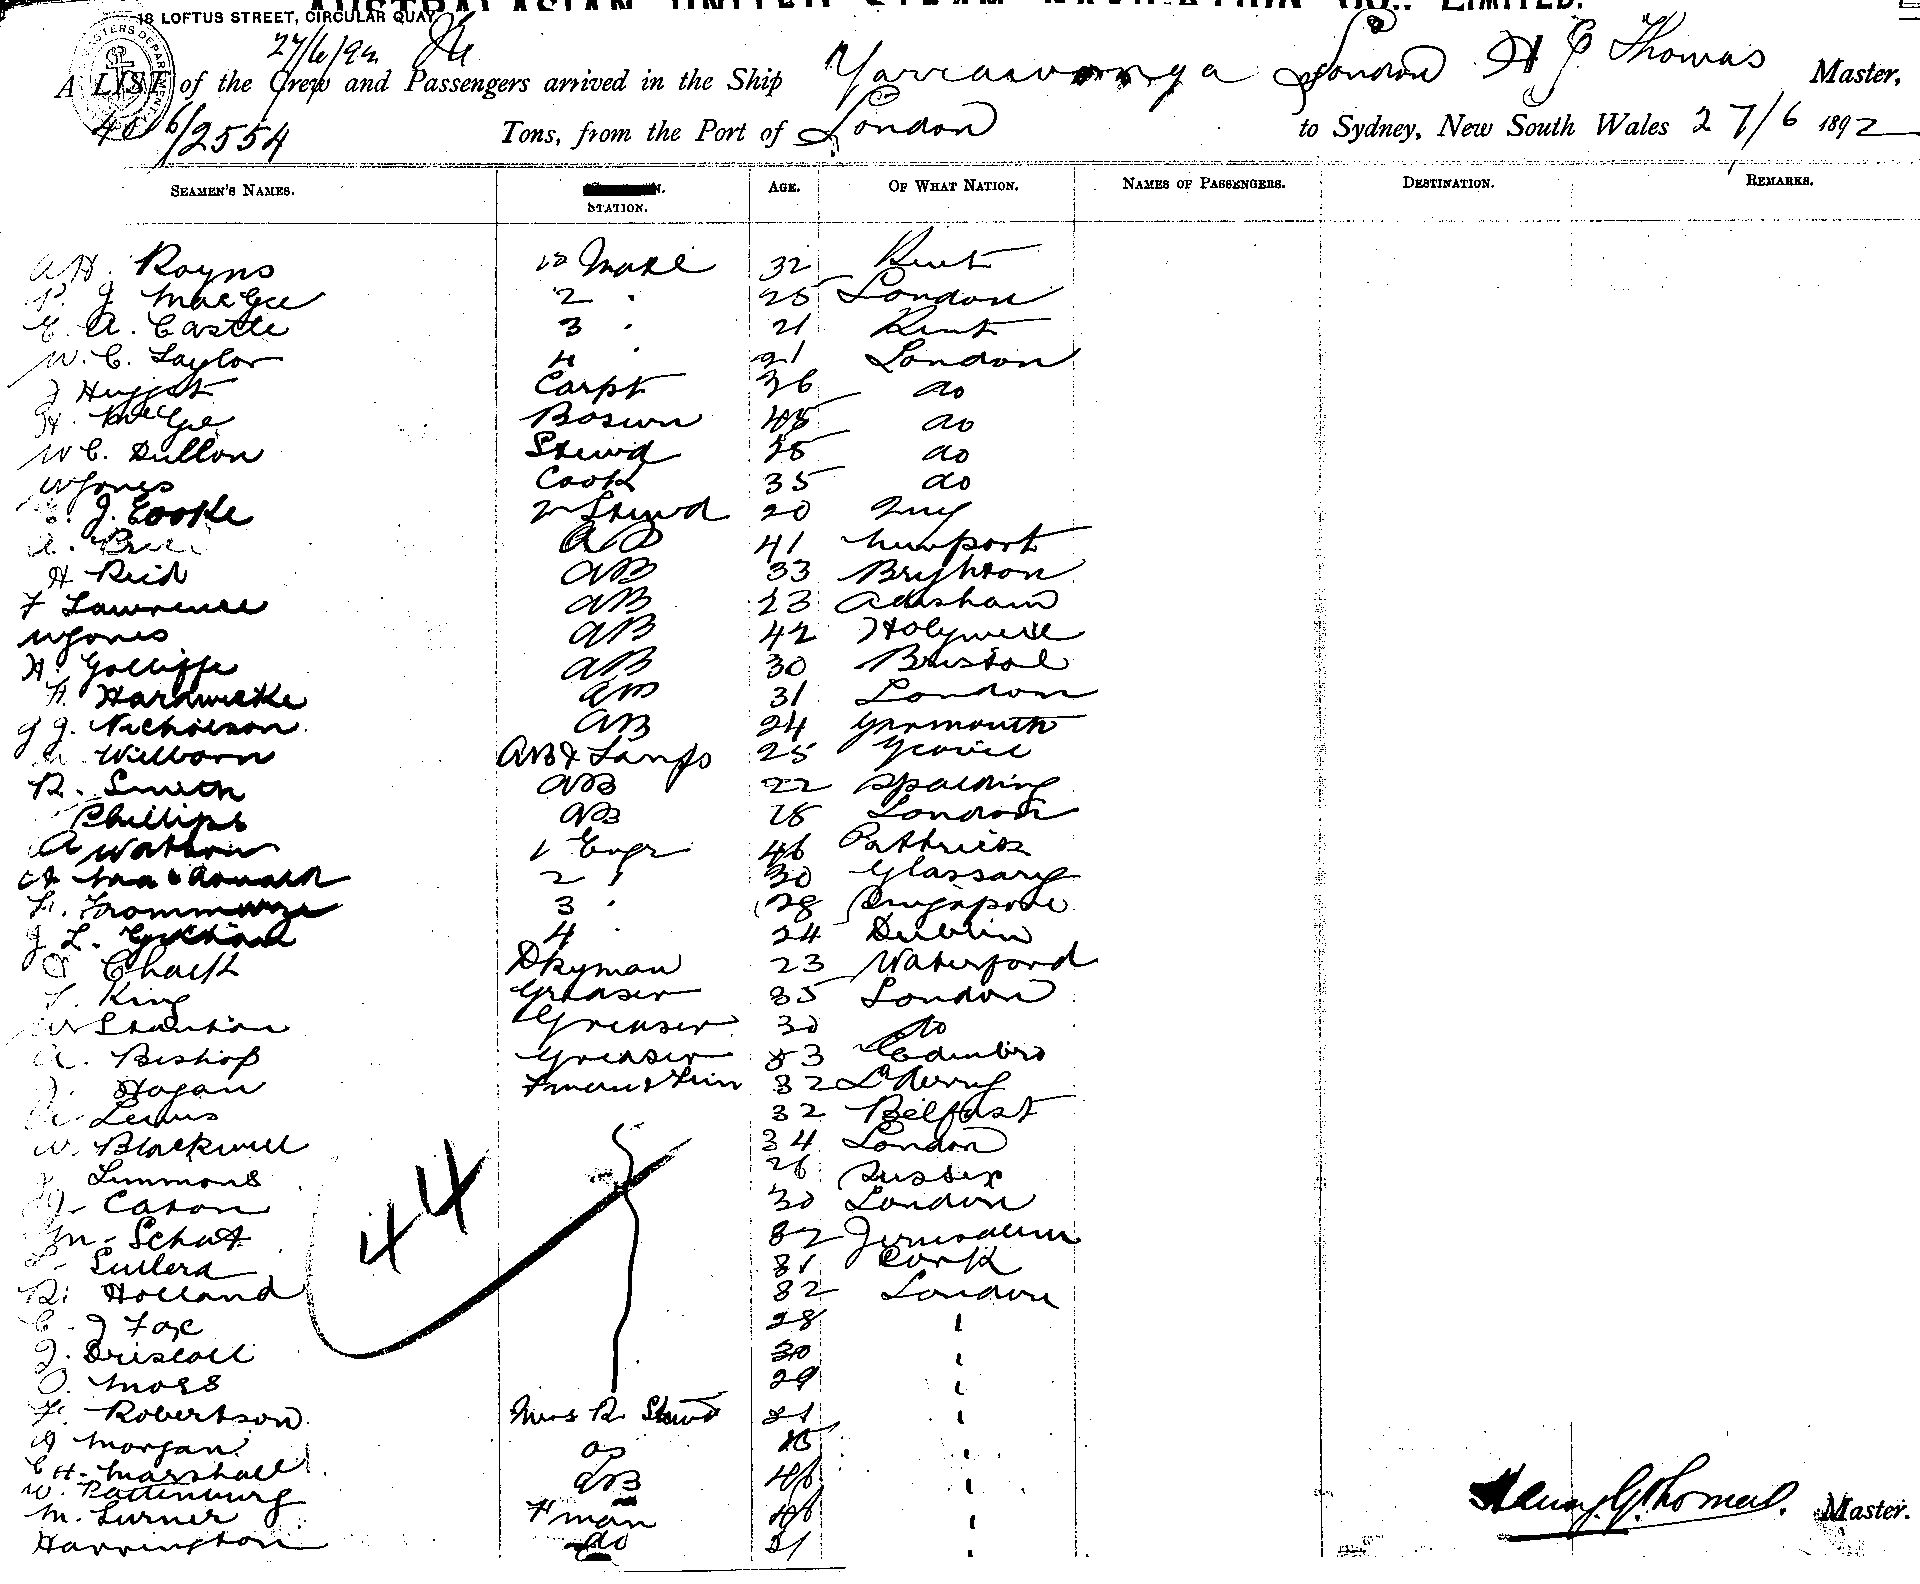 AUSTRALASIAN UNITED STEAM NAVIGATION CO., LIMITED.
18 LOFTUS STREET, CIRCULAR QUAY
27/6/92
A LIST of the Crew and Passengers arrived in the Ship Yarrawonga London H G Thomas Master,
2554 Tons, from the Port of London to Sydney, New South Wales 27/6 1892
SEAMEN'S NAMES. STATION. AGE. OF WHAT NATION. NAMES OF PASSENGERS. DESTINATION. REMARKS.
A H. Rayns 1s Mate 32 Kent
P. J MacGee 2 " 25 London
E. A. Castle 3 " 21 Kent
W. C. Taylor 4 " 21 London
J Huggst Carpt 36 do
H. McGee Bosun 45 do
W C. Dullon Stewd 25 do
W Jones Cook 35 do
E. J. Cooke 2 Stewd 20
A. AB 41 Newport
H Reid AB 33 Brighton
F Lawrence AB 23 Adisham
W Jones AB 42 Holywell
H. Golliffe AB 30 Bristol
H. Hardwicke AB 31 London
J J. Nicholson AB 24 Yarmouth
Wilborn AB & Lamps 25 Yeovil
R. Smith AB 22 Spalding
Phillips AB 28 London
A Watson 1 Engr 46 Pathrick
A MacDonald 2 " 30 Glassary
3 " 28 Singapore
J L. 4 " 24 Dublin
Chalk Dkyman 23 Waterford
T. King Greaser 35 London
W Stanton Greaser 30 do
A. Bishop Greaser 53 Edinbro
J. Hogan Fman & Trim 32 L'Derry
Lewis 32 Belfast
W. Blackwell 34 London
Simmons 26 Sussex
44
J. Caton 30 London
M. Schut 32 Jerusalem
31 Cork
R. Holland 32 London
C. J Fox 28 "
J. Driscoll 30 "
O. Moss 29 "
F. Robertson Mess R. Stewd 21 "
A Morgan do 18 "
C H. Marshall AB 46 "
W. Rattenburg
M. Turner Fman 46 "
Harrington do 31 "
Henry G. Thomas. Master.